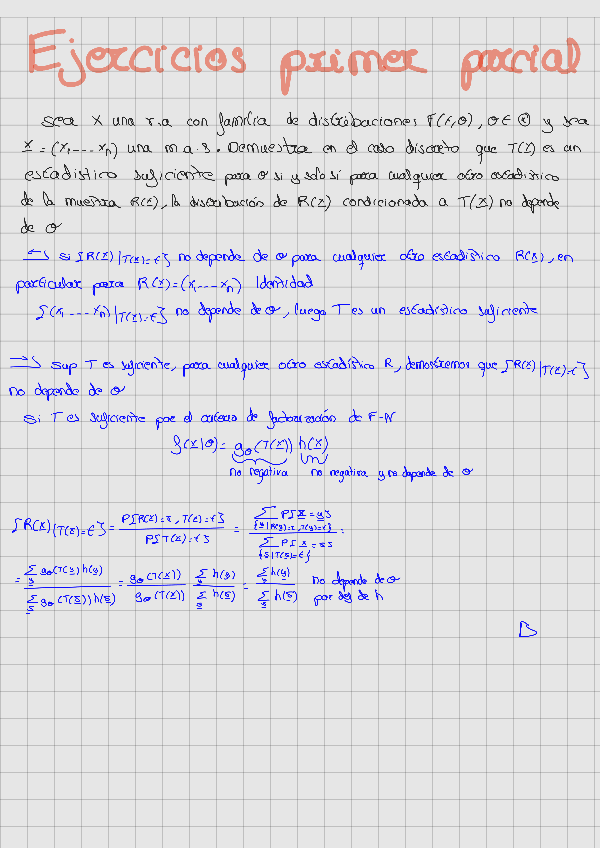 Ejercicios primer parcial
Sea X una r.a con familia de distribuciones F(x,θ), θ ∈ Θ y sea
X = (x₁,--- xₙ) una m.a.s. Demuestra en el caso discreto que T(X) es un
estadístico suficiente para θ si y solo sí para cualquier otro estadístico
de la muestra R(X), la distribución de R(X) condicionada a T(X) no depende
de θ
⇐ si {R(X)|T(X)=t} no depende de θ para cualquier otro estadístico R(X), en
particular para R(X)=(x₁,--- xₙ) Identidad
{(x₁,--- xₙ)|T(X)=t} no depende de θ, luego T es un estadístico suficiente
⇒ Sup T es suficiente, para cualquier otro estadístico R, demostremos que {R(X)|T(X)=t}
no depende de θ
Si T es suficiente por el criterio de factorización de F-N
f(x|θ) = gθ(T(x)) h(x)
no negativa no negativa y no depende de θ
{R(X)|T(X)=t} = P{R(X)=r, T(X)=t} / P{T(X)=t} = ∑{y|R(y)=r, T(y)=t} P{X=y} / ∑{s|T(s)=t} P{X=s} =
= ∑y gθ(T(y)) h(y) / ∑s gθ(T(s)) h(s) = gθ(T(x)) / gθ(T(x)) ∑y h(y) / ∑s h(s) = ∑y h(y) / ∑s h(s) no depende de θ
por de h